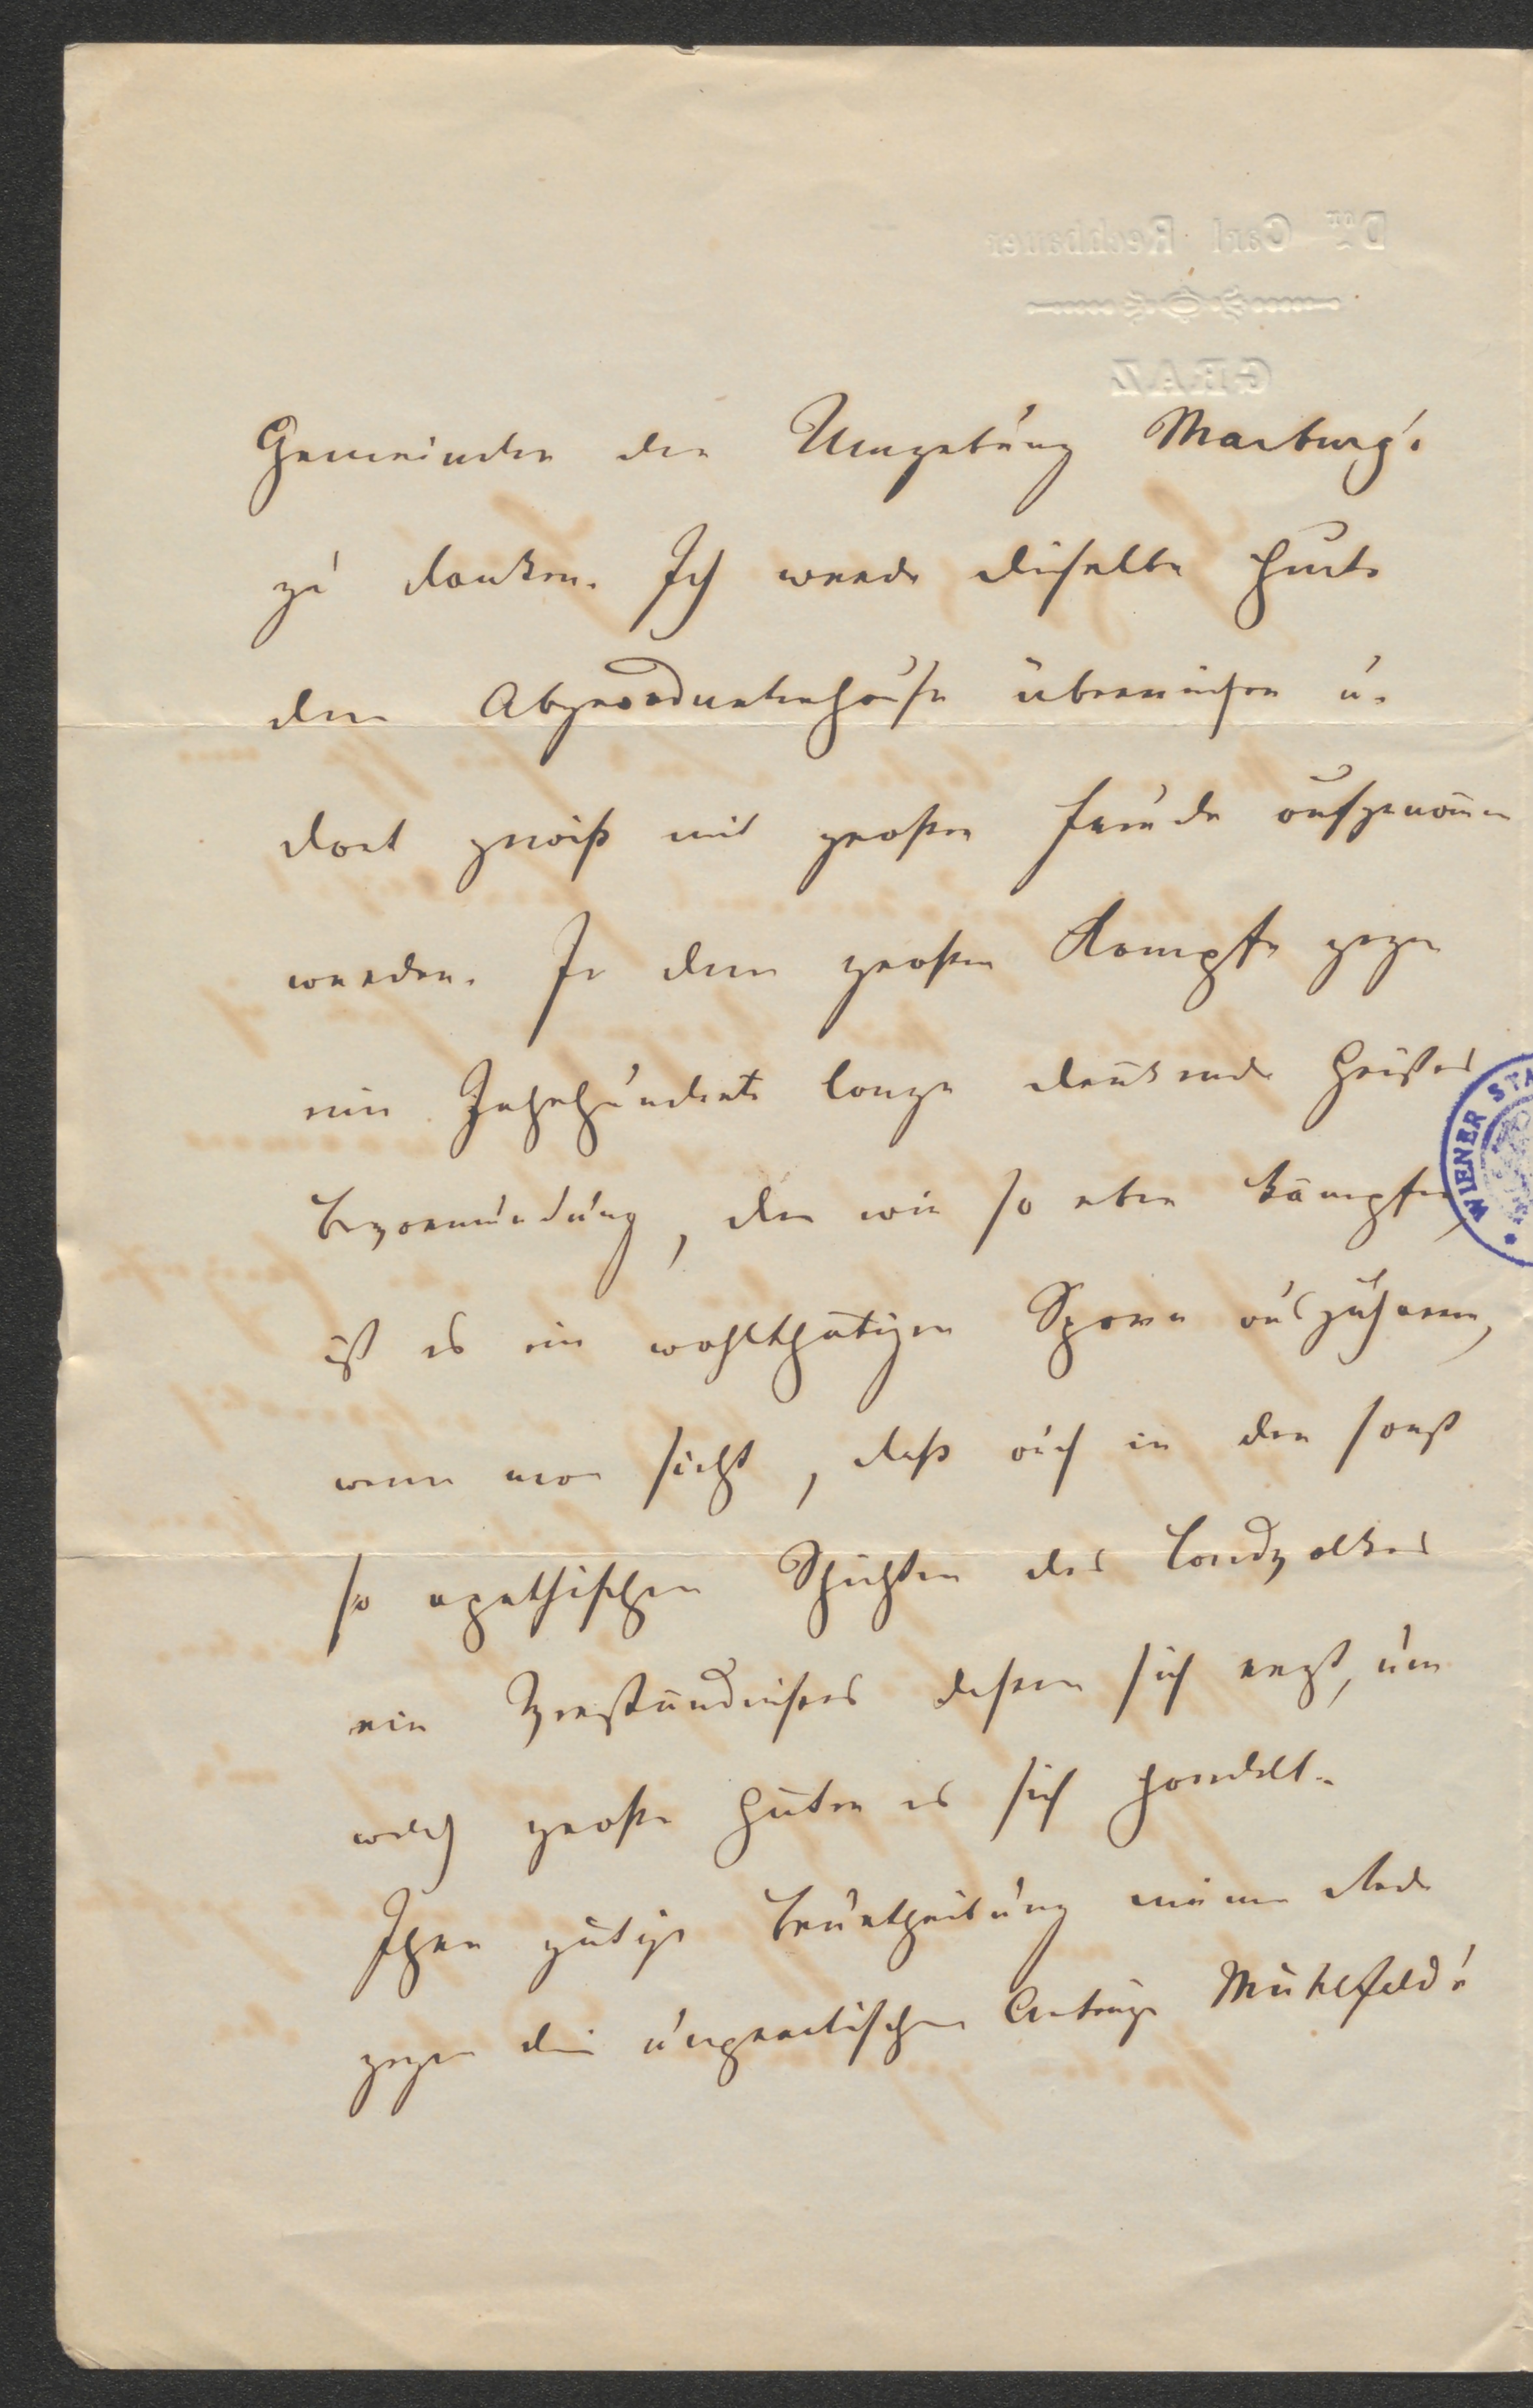 Dor Carl Rechbauer
GRAZ
Gemeinden der Umgebung Marburg's
zu danken. Ich werde dieselbe heute
dem Abgeordnetenhause überreichen u.
dort gewiß mit großer Freude aufgenom̅en
werden. In dem großen Kampfe gegen
eine Jahrhunderte lange drückende Geistes
bevormundung, den wir so eben kämpfen,
ist es ein wohlthätiger Sporn auszuharren,
wenn man sieht, daß auch in den sonst
so apathischen Schichten des Landvolkes
ein Verständnisses dessen sich regt, um
welch große Güter es sich handelt.
Ihre gütige Beurtheilung meiner Rede
gegen die unpractischen Anträge Mühlfeld's
WIENER STA